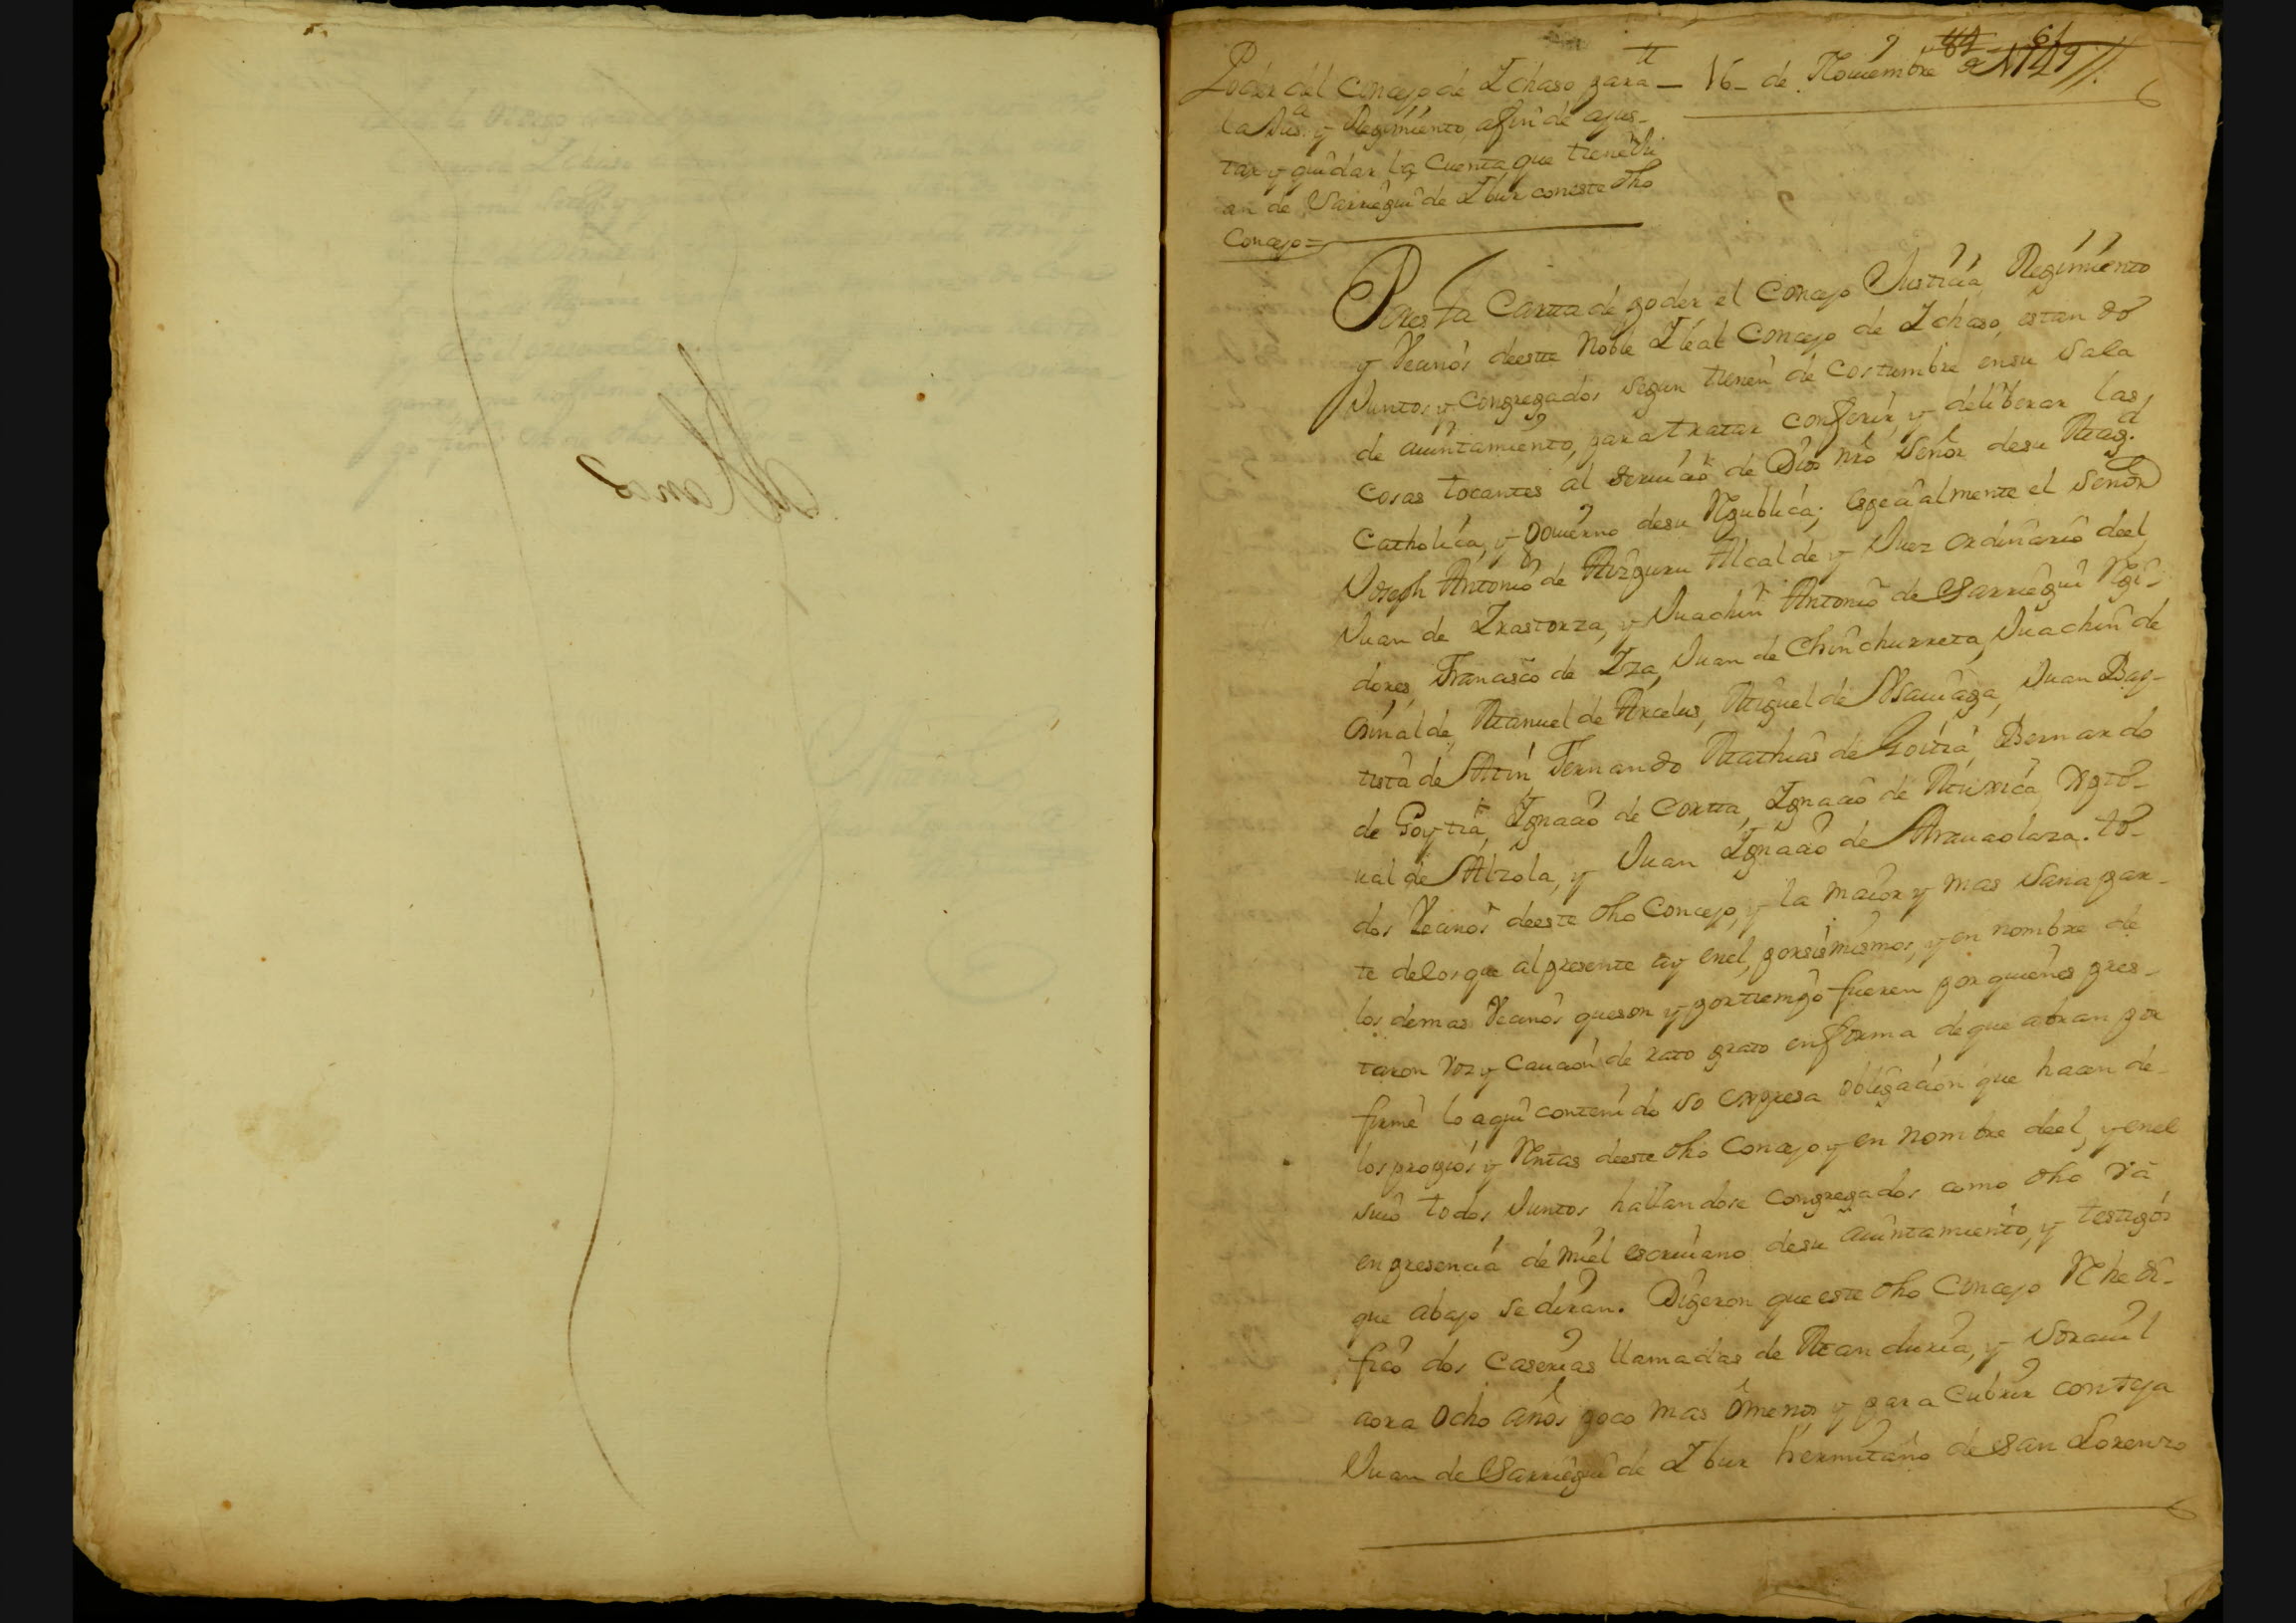 Blanco
61
Poder del Concejo de Ichaso para — 16 – de Nouiembre de 1749 //.
la Jusª y Regimiento, afin de ajus-
tar y quidar la Cuenta que tiene Ju
an de Sarriegui de Ibur con este dho
Concejo =
Por esta Cartta de poder el Concejo Justicia, Regimiento
y Vecinos deestte Noble I leal Concejo de Ichaso, estando
Juntos y Congregados segun tienen de Costumbre en su Sala
de aiuntamiento, para tratar conferir, y deliberar las
cosas tocantes al seruicio de Dios nrô Señor de su Magd.
Catholica, y Gouierno desu Republica; especialmente el Señor
Joseph Antonio de Aizguru Alcalde y Juez ordinario deel,
Juan de Irastorza, y Juachin Antonio de Sarriegui Regi-
dores, Francisco de Iza, Juan de Chinchurreta, Juachin de
Orinalde, Manuel de Arcelus, Miguel de Usauiaga, Juan Bap-
tista de Atin Fernando Mathias de Goitia, Bernardo
de Goytia, Ignacio de Cortta, Ignacio de Muxica, Xpto-
ual de Alzola, y Juan Ignacio de Arauaolaza. to-
dos Vecinos deeste dho Concejo, y la maior y mas Sana par-
te delos que al presente ay enel, por si mismos, y en nombre de
los demas Vecinos queson y portiempo fueren por quienes pres-
taron Voz y Caucion de rato grato enforma de que abran por
firme lo aqui contenido so expresa obligacion que hacen de
los propios y Rentas deeste dho Concejo y en nombre deel, y en el
suio todos Juntos hallandose Congregados como dho Va
en presencia de mi el escriuano desu aiuntamiento, y testigos
que abajo se diran. Digeron que este dho Concejo Rhedi-
ficò dos Caserias llamadas de Manduria, y Sorauil
aora Ocho años poco mas ô menos, y para Cubrir con teja
Juan de Sarriegui de Ibur hermitaño de San Lorenzo